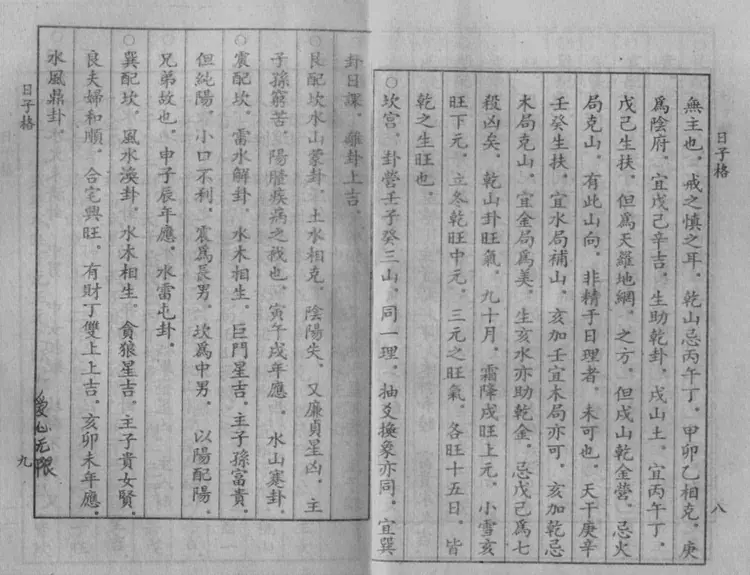 日子格
無主也。戒之慎之耳。乾山忌丙午丁。甲卯乙相克。庚
為陰府。宜戊己辛吉。生助乾卦。戌山土。宜丙午丁。
戊己生扶。但為天羅地網。之方。但戌山乾金營。忌火
局克山。有此山向。非精于日理者。未可也。天干庚辛
壬癸生扶。宜水局補山。亥加壬宜木局亦可。亥加乾忌
木局克山。宜金局爲美。生亥水亦助乾金。忌戊己爲七
殺凶矣。乾山卦旺氣。九十月。霜降戌旺上元。小雪亥
旺下元。立冬乾旺中元。三元之旺氣。各旺十五日。皆
乾之生旺也。
○坎宮。卦營壬子癸三山。同一理。抽爻換象亦同。宜巽
八
卦日課。離卦上吉。
○艮配坎水山蒙卦。土水相克。陰陽失。又廉貞星凶。主
子孫窮苦。陽膧疾病之戟也。寅午戌年應。水山蹇卦。
○震配坎。雷水解卦。水木相生。巨門星吉。主子孫富貴。
但純陽。小口不利。震爲長男。坎爲中男。以陽配陽。
兄弟故也。申子辰年應。水雷屯卦。
○巽配坎。風水渙卦。水木相生。貪狼星吉。主子貴女賢。
良夫婦和順。合宅興旺。有財丁雙上上吉。亥卯未年應。
水風鼎卦。
日子格
九
愛心无限